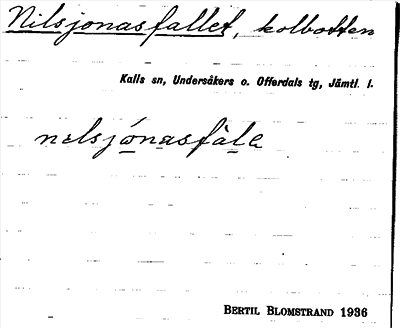 Nilsjonasfallet, kolbotten
Kalls sn, Undersåkers o. Offerdals tg, Jämtl. l.
nilsjónasfàlə
BERTIL BLOMSTRAND 1936